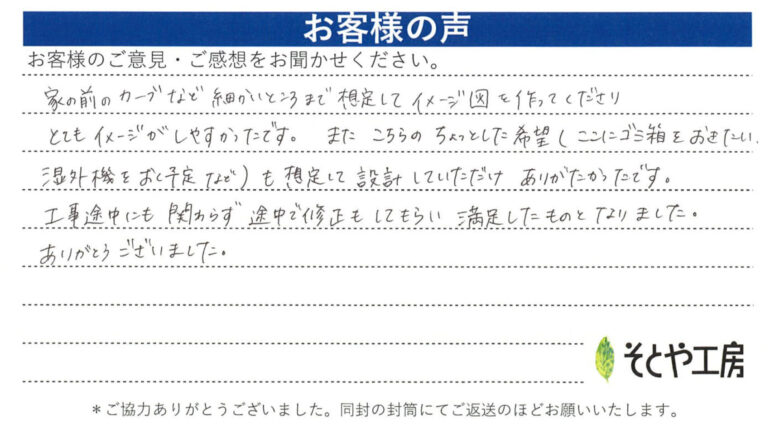 お客様の声
お客様のご意見・ご感想をお聞かせください。
家の前のカーブなど細かいところまで想定してイメージ図を作ってくださり
とてもイメージがしやすかったです。また こちらのちょっとした希望(ここにゴミ箱をおきたい、
湿外機をおく予定など)も想定して設計していただけ ありがたかったです。
工事途中にも関わらず途中で修正もしてもらい 満足したものとなりました。
ありがとうございました。
そとや工房
＊ご協力ありがとうございました。同封の封筒にてご返送のほどお願いいたします。